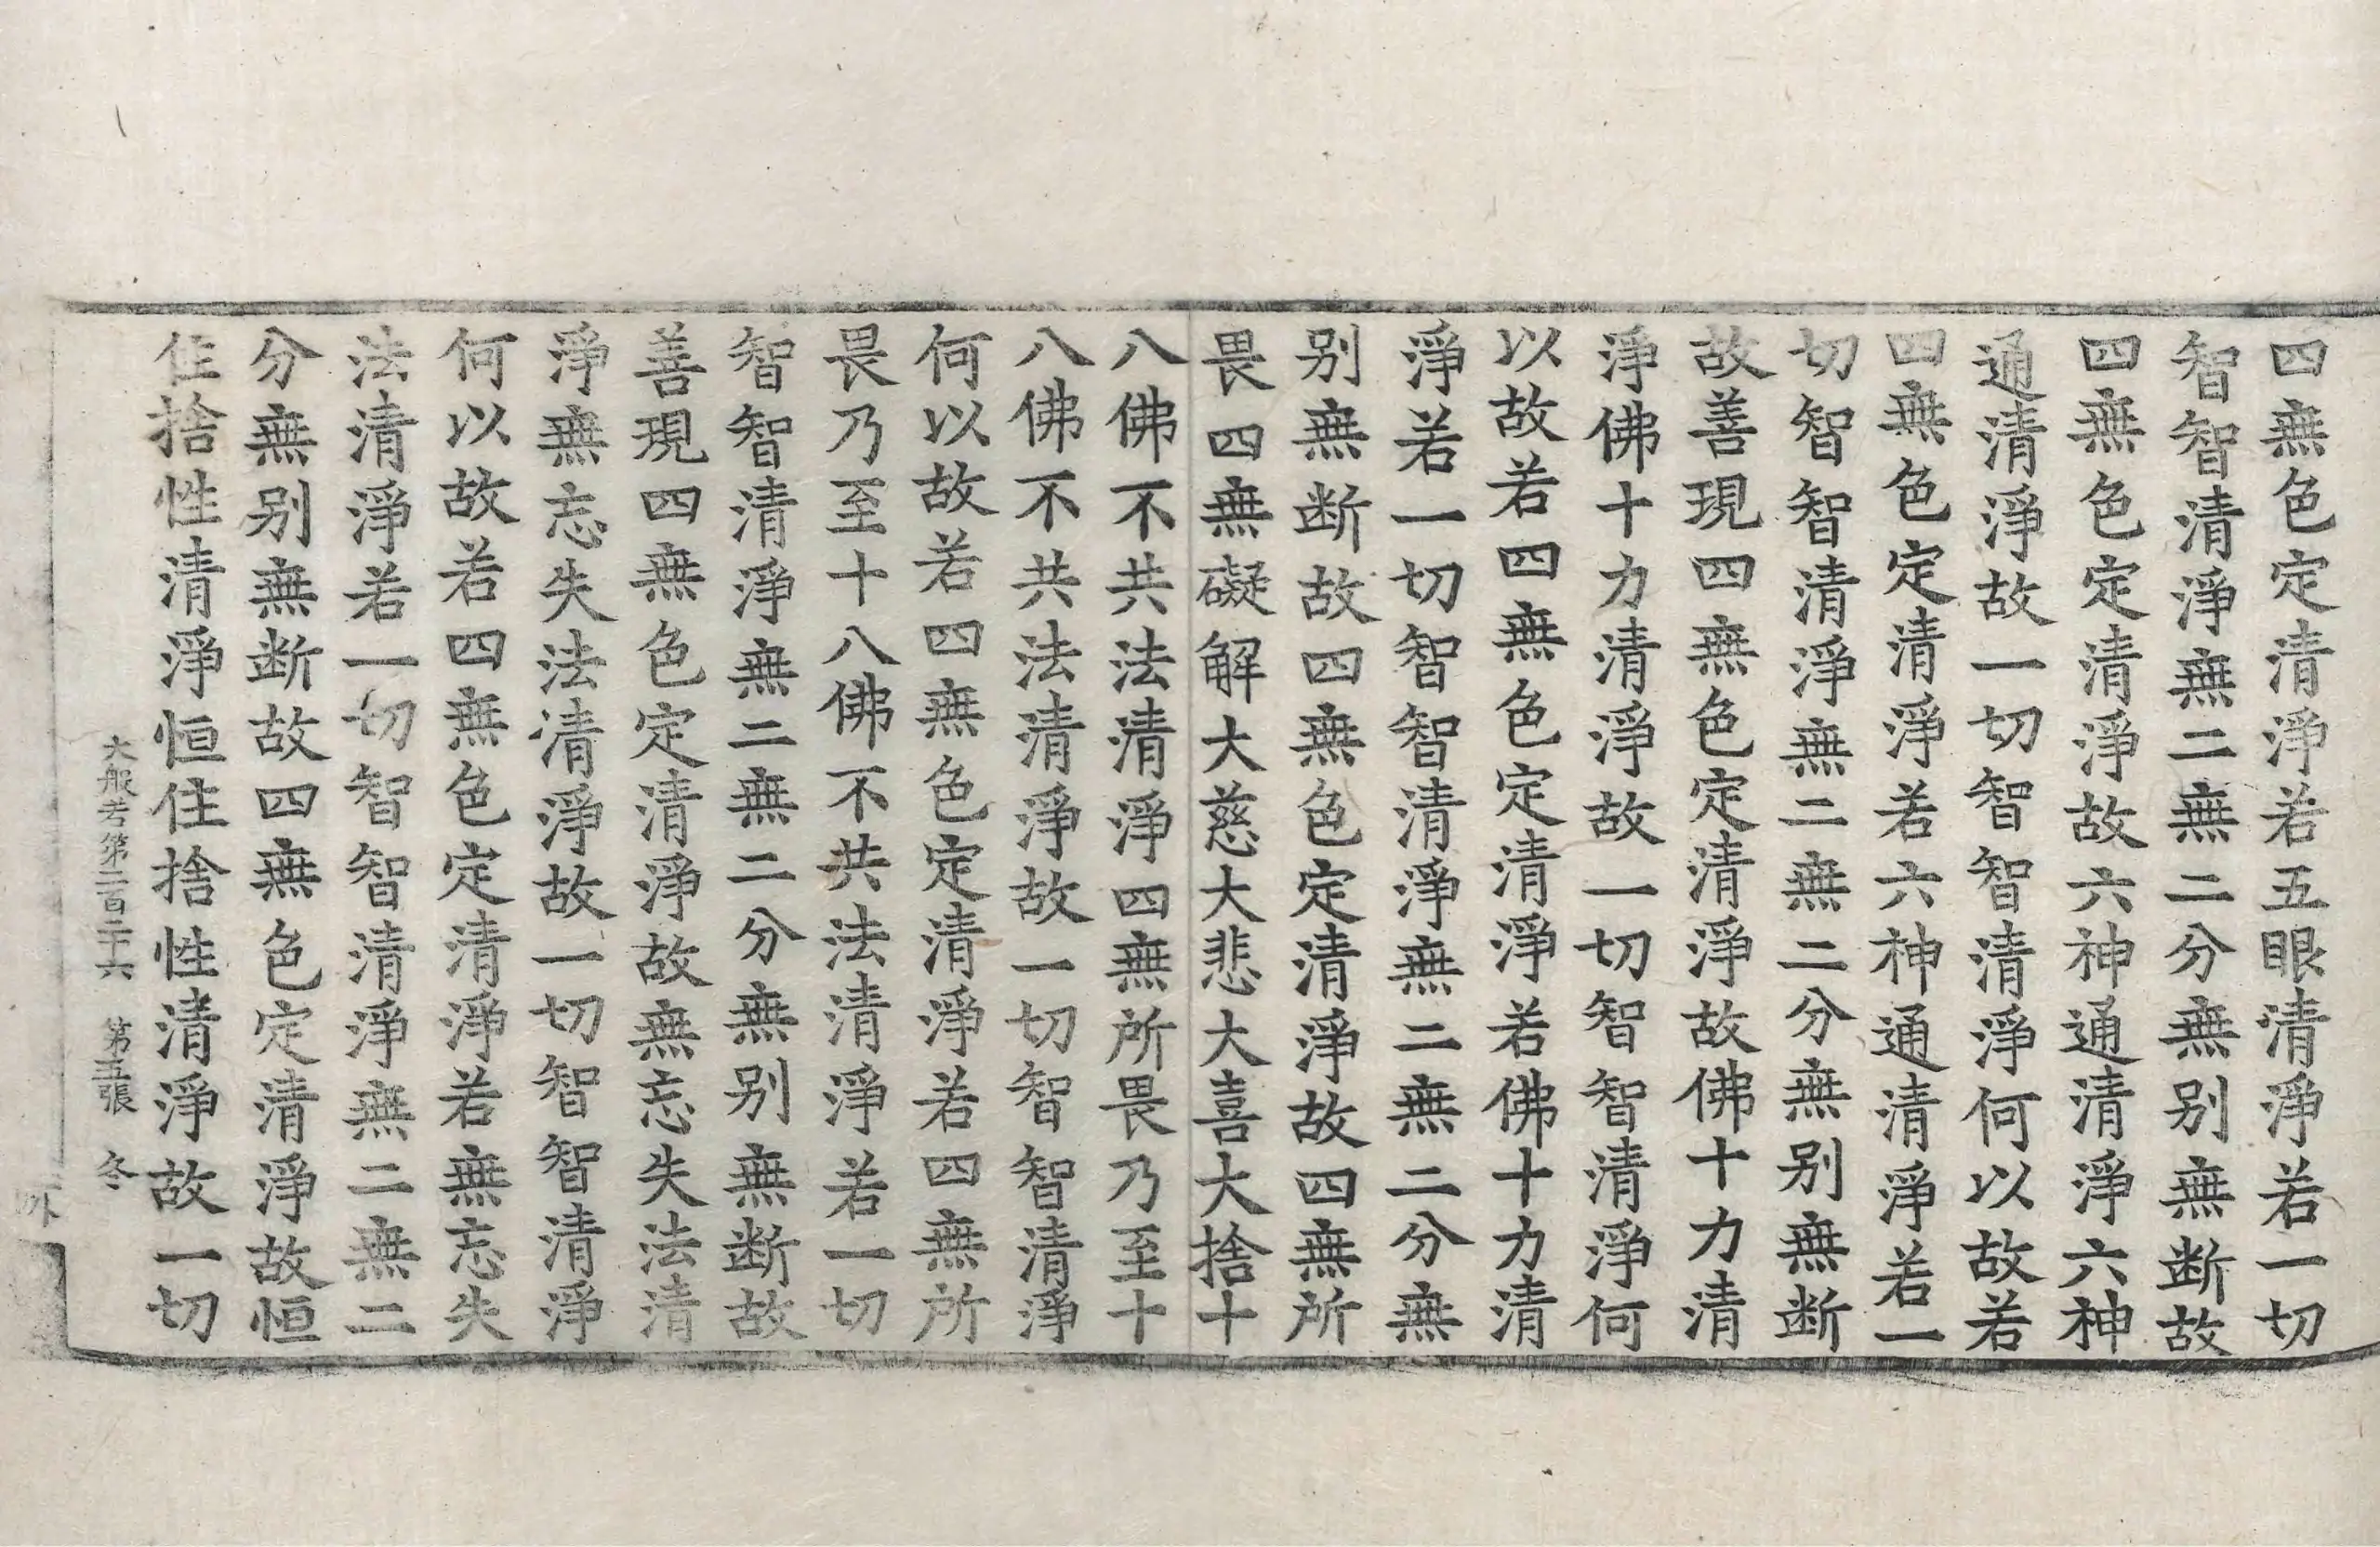 四無色定清淨若五眼清淨若一切
智智清淨無二無二分無别無断故
四無色定清淨故六神通清淨六神
通清淨故一切智智清淨何以故若
四無色定清淨若六神通清淨若一
切智智清淨無二無二分無别無断
故善現四無色定清淨故佛十力清
淨佛十力清淨故一切智智清淨何
以故若四無色定清淨若佛十力清
淨若一切智智清淨無二無二分無
别無断故四無色定清淨故四無所
畏四無礙解大慈大悲大喜大捨十
八佛不共法清淨四無所畏乃至十
八佛不共法清淨故一切智智清淨
何以故若四無色定清淨若四無所
畏乃至十八佛不共法清淨若一切
智智清淨無二無二分無别無断故
善現四無色定清淨故無忘失法清
淨無忘失法清淨故一切智智清淨
何以故若四無色定清淨若無忘失
法清淨若一切智智清淨無二無二
分無别無断故四無色定清淨故恒
住捨性清淨恒住捨性清淨故一切
大般若第二百二十六 第五張 冬